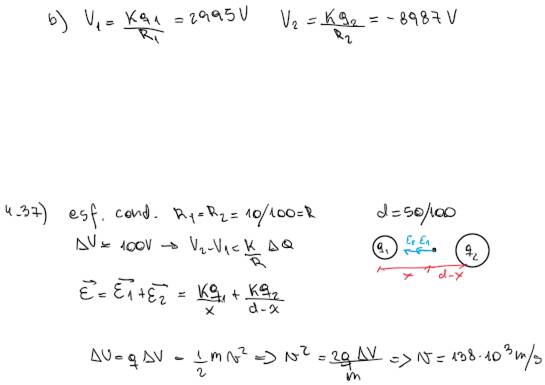 b) V₁ = Kq₁/R₁ = 2995 V V₂ = Kq₂/R₂ = -8987 V
4-37) esf. cond. R₁=R₂=10/100=R d=50/100
ΔV=100V → V₂-V₁=K/R ΔQ
q₁ E₂ E₁ q₂
x d-x
E⃗ = E⃗₁+E⃗₂ = Kq₁/x + Kq₂/d-x
ΔU=q ΔV = 1/2 m v² => v² = 2q ΔV/m => v = 138·10³ m/s